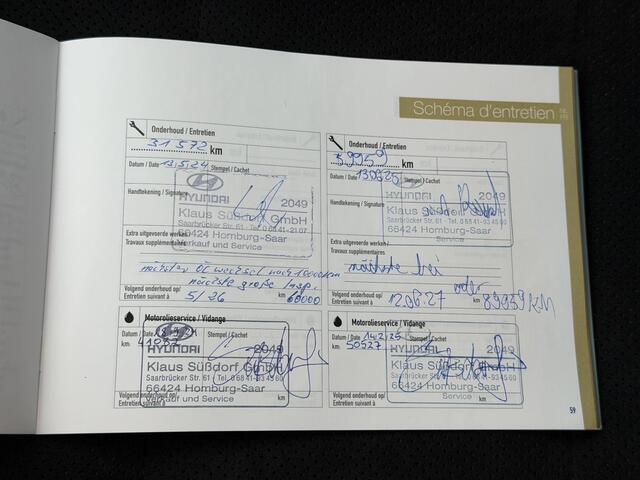 Schéma d'entretien
NL
FR
Onderhoud / Entretien
31 572 km
Datum / Date 13.5.24 Stempel / Cachet
HYUNDAI 2049
Handtekening / Signature
Klaus Süßdorf GmbH
Saarbrücker Str. 61 - Tel. 0 68 41-21 07
66424 Homburg-Saar
Extra uitgevoerde werken /
Verkauf und Service
Travaux supplémentaires
nächster Öl wechsel nach 10000km
nächste große Insp.
Volgend onderhoud op/
Entretien suivant à 5/26 km 60000
Onderhoud / Entretien
59959 km
Datum / Date 13.06.25 Stempel / Cachet
HYUNDAI 2049
Handtekening / Signature
Klaus Süßdorf GmbH
Saarbrücker Str. 61 - Tel. 0 68 41-93 45 60
66424 Homburg-Saar
Extra uitgevoerde werken /
Service
Travaux supplémentaires
nächste bei
oder
Volgend onderhoud op/
Entretien suivant à 12.06.27 km 89959 KM
Motorolieservice / Vidange
Datum / Date Stempel / Cachet
km:
HYUNDAI 2049
Klaus Süßdorf GmbH
Saarbrücker Str. 61 / Tel. 0 68 41-93 45 60
66424 Homburg-Saar
Volgend onderhoud op/
Verkauf und Service
Entretien suivant à km
Motorolieservice / Vidange
Datum / Date 14.2.25 Stempel / Cachet
km: 50527
HYUNDAI 2049
Klaus Süßdorf GmbH
Saarbrücker Str. 61 - Tel. 0 68 41-93 45 60
66424 Homburg-Saar
Volgend onderhoud op/
Service
Entretien suivant à km
59